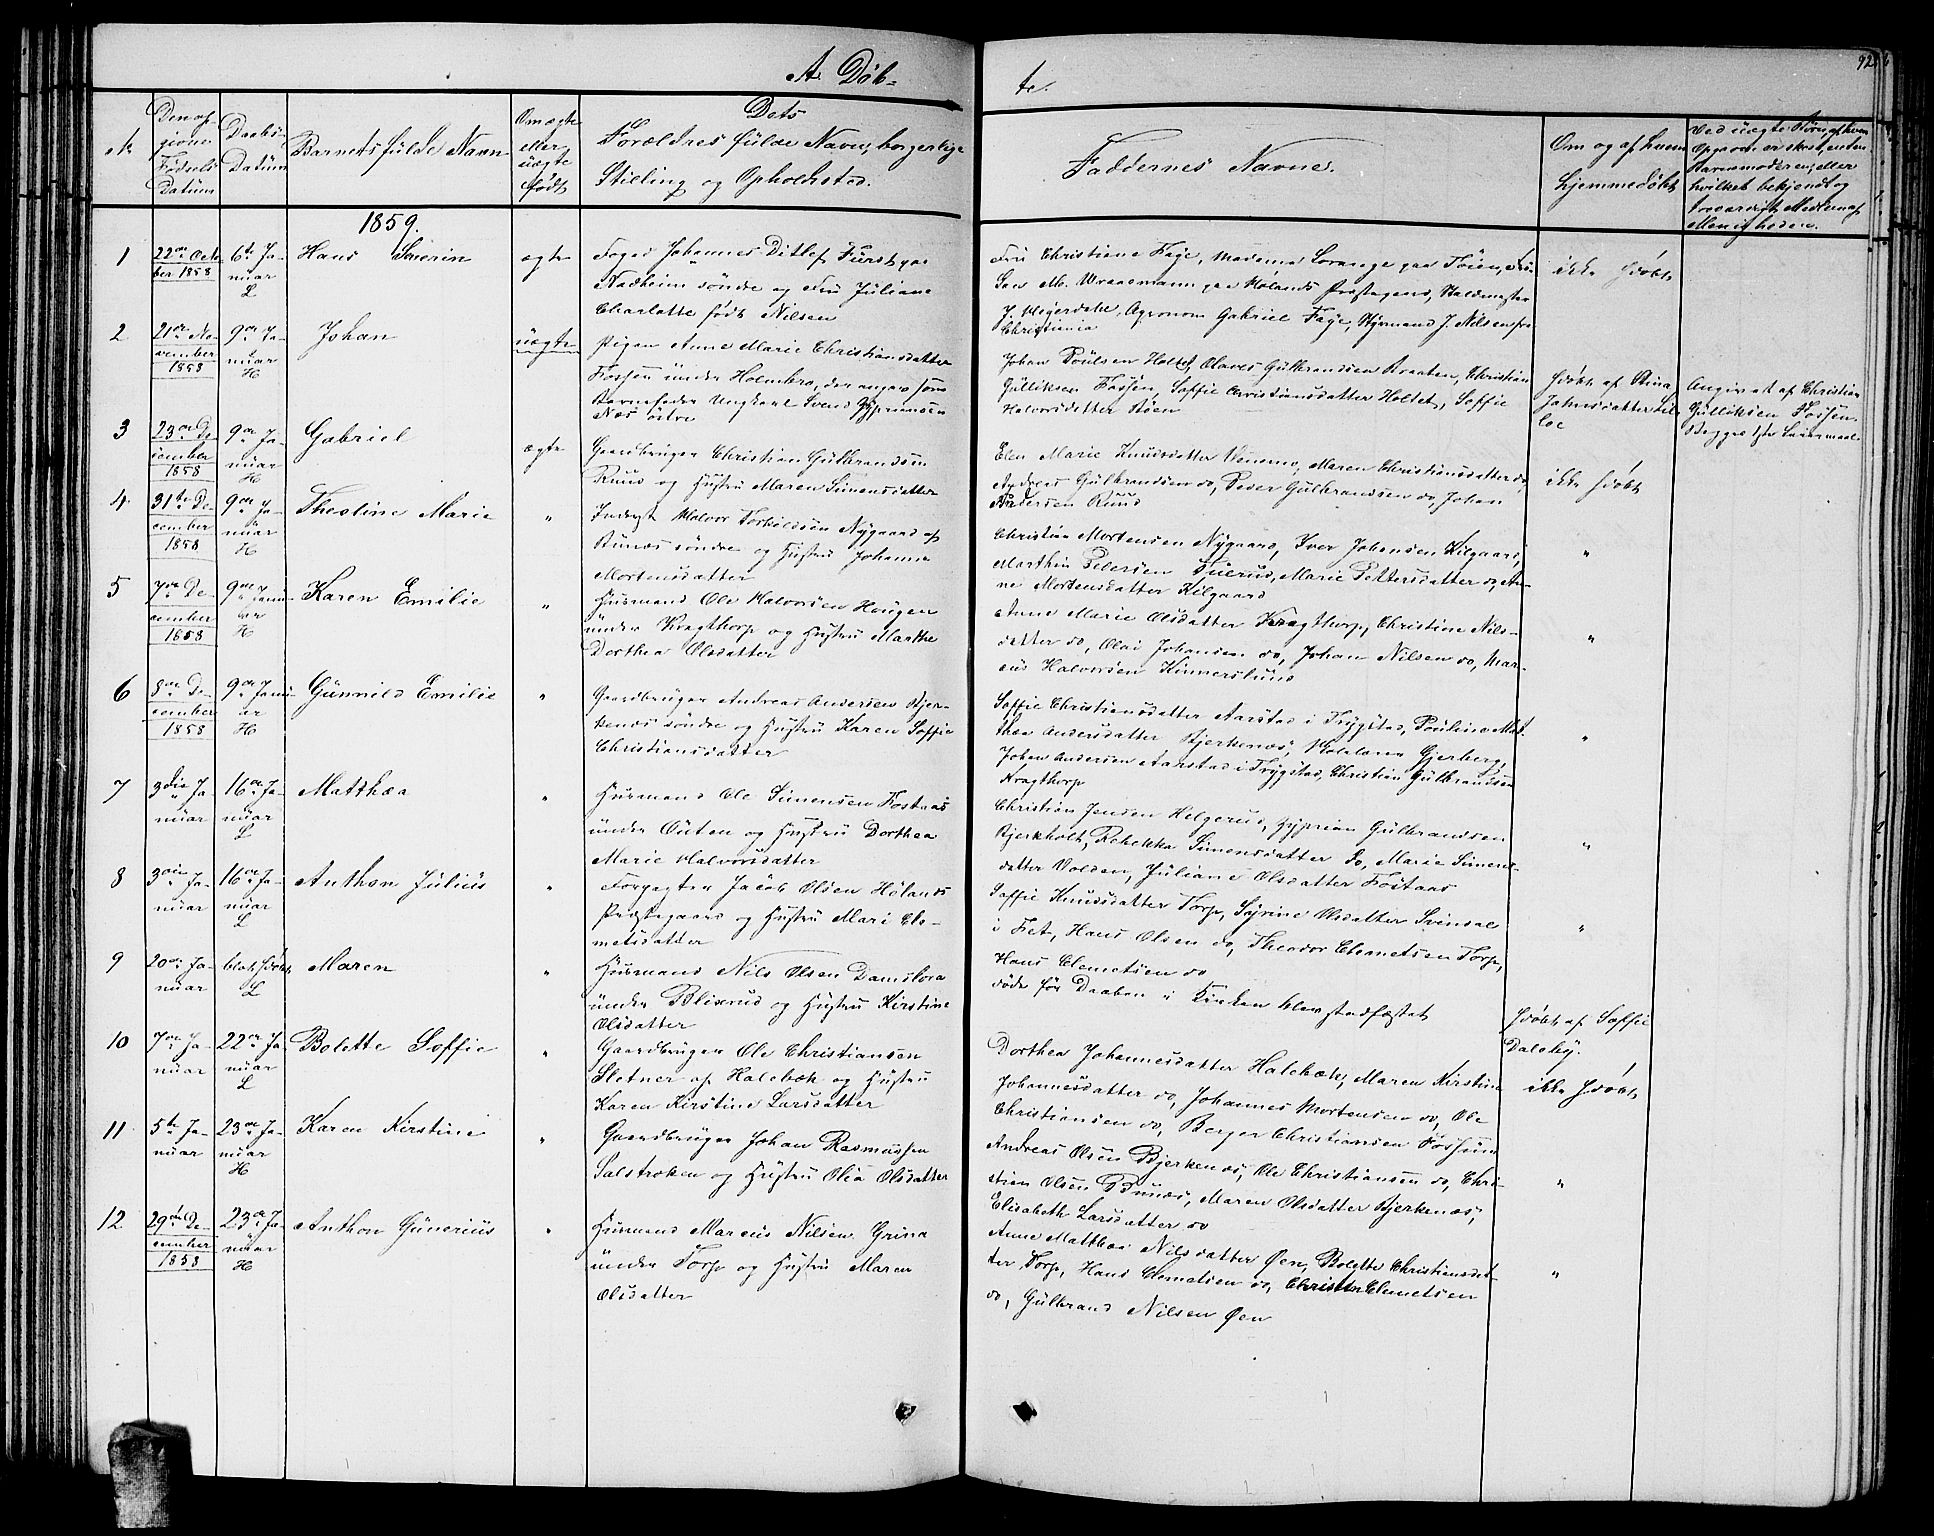 A. Döb-
te.
92
№
Den op-
givne
Fødsels
Datüm
Daabs-
Datüm
Barnets fülde Navn
Om ægte
eller
üægte
født
Dets
Forældres fülde Navn, borgerlige
Stilling og Opholdssted.
Faddernes Navne.
Om og af hvem
hjemmedöbt
Ved üægte Børn, af hvem
Opgaven er skeet, enten
Barnemoderen, eller
hvilket bekjendt og
troværdigt Medlem af
Menigheden.
1859.
1
22de Octo-
ber 1858
6te Ja-
nüar
L
Hans Severin
ægte
Foged Johannes Ditlef Fürst paa
Nadheim söndre og Frü Jüliane
Charlotte født Nilsen
Frü Christiane Faye, Madame Lorange paa Töien, Frü
M. Wraamann paa Hölands Præstegaard,
J. Meyerdahl, Agronom Gabriel Faye, Styrmand J. Nilsen fra
Christiania
ikke hdöbt
2
21de No-
vember
1858
9de Ja-
nüar
H
Johan
üægte
Pigen Anne Marie Christiansdatter
Fossen ünder Holmbro, der angav som
Barnefader Ungkarl Svend Zypriansen
Næs östre
Johan Poülsen Holtet, Olaves Gülbrandsen Braaten, Christian
Gülliksen Fossen, Soffie Christiansdatter Holtet, Soffie
Halvorsdatter Röen
hdöbt af Stina
Johnsdatter Lil-
loe
Angivet af Christian
Gülliksen Fossen
Begges 1ste Leiermaal
3
23de De-
cember
1858
9de Ja-
nüar
H
Gabriel
ægte
Gaardbrüger Christian Gülbrandsen
Rüüd og Hüstrü Maren Simensdatter
Elen Marie Knüdsdatter Wennemo, Maren Christiansdatter do,
Andreas Gülbrandsen do, Peder Gülbrandsen do, Johan
Andersen Rüüd
ikke hdöbt
4
31te De-
cember
1858
9de Ja-
nüar
H
Theoline Marie
"
Inderst Halvor Torkildsen Nygaard af
Bünæs söndre og Hüstrü Johanne
Mortensdatter
Christian Mortensen Nygaard, Iver Johansen Kilgaard,
Marthin Petersen Tüerud, Marie Pettersdatter do, An-
ne Mortensdatter Kilgaard
"
5
7de De-
cember
1858
9de Janü-
ar
H
Karen Emilie
"
Hüsmand Ole Halvorsen Haugen
ünder Kragthorp og Hüstrü Marthe
Dorthea Olsdatter
Anne Marie Olsdatter Kragthorp, Christine Nils-
datter do, Olai Johansen do, Johan Nilsen do, Mar-
cüs Halvorsen Kinnerslund
"
6
8de De-
cember
1858
9de Janü-
ar
H
Günnild Emilie
"
Gaardbrüger Andreas Andersen Bjer-
kenæs söndre og Hüstrü Karen Soffie
Christiansdatter
Soffie Christiansdatter Aarstad i Trygstad, Poüline Mat-
thea Andersdatter Bjerkenæs, Gjerberg,
Johan Andersen Aarstad i Trygstad, Christian Gülbrandsen
Kragthorp
"
7
3die Ja-
nüar
16de Ja-
nüar
L
Matthea
"
Hüsmand Ole Simensen Fostaas
ünder Oüten og Hüstrü Dorthea
Marie Halvorsdatter
Christian Jensen Helgerud, Zyprian Gülbrandsen
Bjerkholt, Rebekka Simensdatter do, Marie Simens-
datter Volden, Jüliane Olsdatter Fostaas
"
8
3die Ja-
nüar
16de Ja-
nüar
L
Anthon Jüliüs
"
Forpagter Jacob Olsen Hölands
Præstegaard og Hüstrü Mari Cle-
metsdatter
Soffie Knüdsdatter Torp, Syrine Olsdatter Svindal
i Fet, Hans Olsen do, Theodor Clemetsen Torp,
Hans Clemetsen do
"
9
20de Ja-
nüar
blot hdöbt
L
Maren
"
Hüsmand Nils Olsen Damslora
ünder Blixrud og Hüstrü Kirstine
Olsdatter
döde för Daaben i Kirken blev stadfæstet
hdöbt af Soffie
Daleby.
10
7de Ja-
nüar
22de Ja-
nüar
L
Bolette Soffie
"
Gaardbrüger Ole Christiansen
Sletner af Halebæk og Hüstrü
Karen Kirstine Larsdatter
Dorthea Johannesdatter Halebæk, Maren Kirstine
Johannesdatter do, Johannes Mortensen do, Ole
Christiansen do, Berger Christiansen Fossum
ikke hdöbt
11
5te Ja-
nüar
23de Ja-
nüar
H
Karen Kirstine
"
Gaardbrüger Johan Rasmussen
Salstroken og Hüstrü Olea Olsdatter
Andreas Olsen Bjerkenæs, Ole Christiansen do, Chri-
stian Olsen Bünæs, Maren Olsdatter Bjerkenæs,
Elisabeth Larsdatter do
"
12
29de De-
cember
1858
23de Ja-
nüar
H
Anthon Güneriüs
"
Hüsmand Marcus Nilsen Grina
ünder Torp og Hüstrü Maren
Olsdatter
Anne Matthea Nilsdatter Øen, Bolette Christiansdat-
ter Torp, Hans Clemetsen do, Christian Clemetsen
do, Gülbrand Nilsen Øen
"